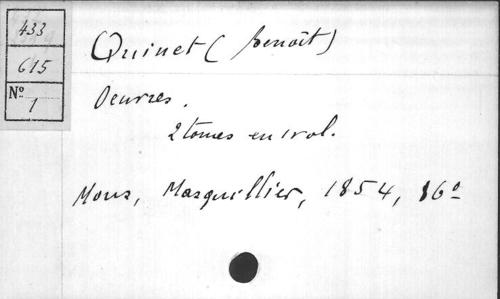 433
615
No
1
Quinet (Benoît)
Oeuvres.
2 tomes en 1 vol.
Mons, Masquillier, 1854, 16o